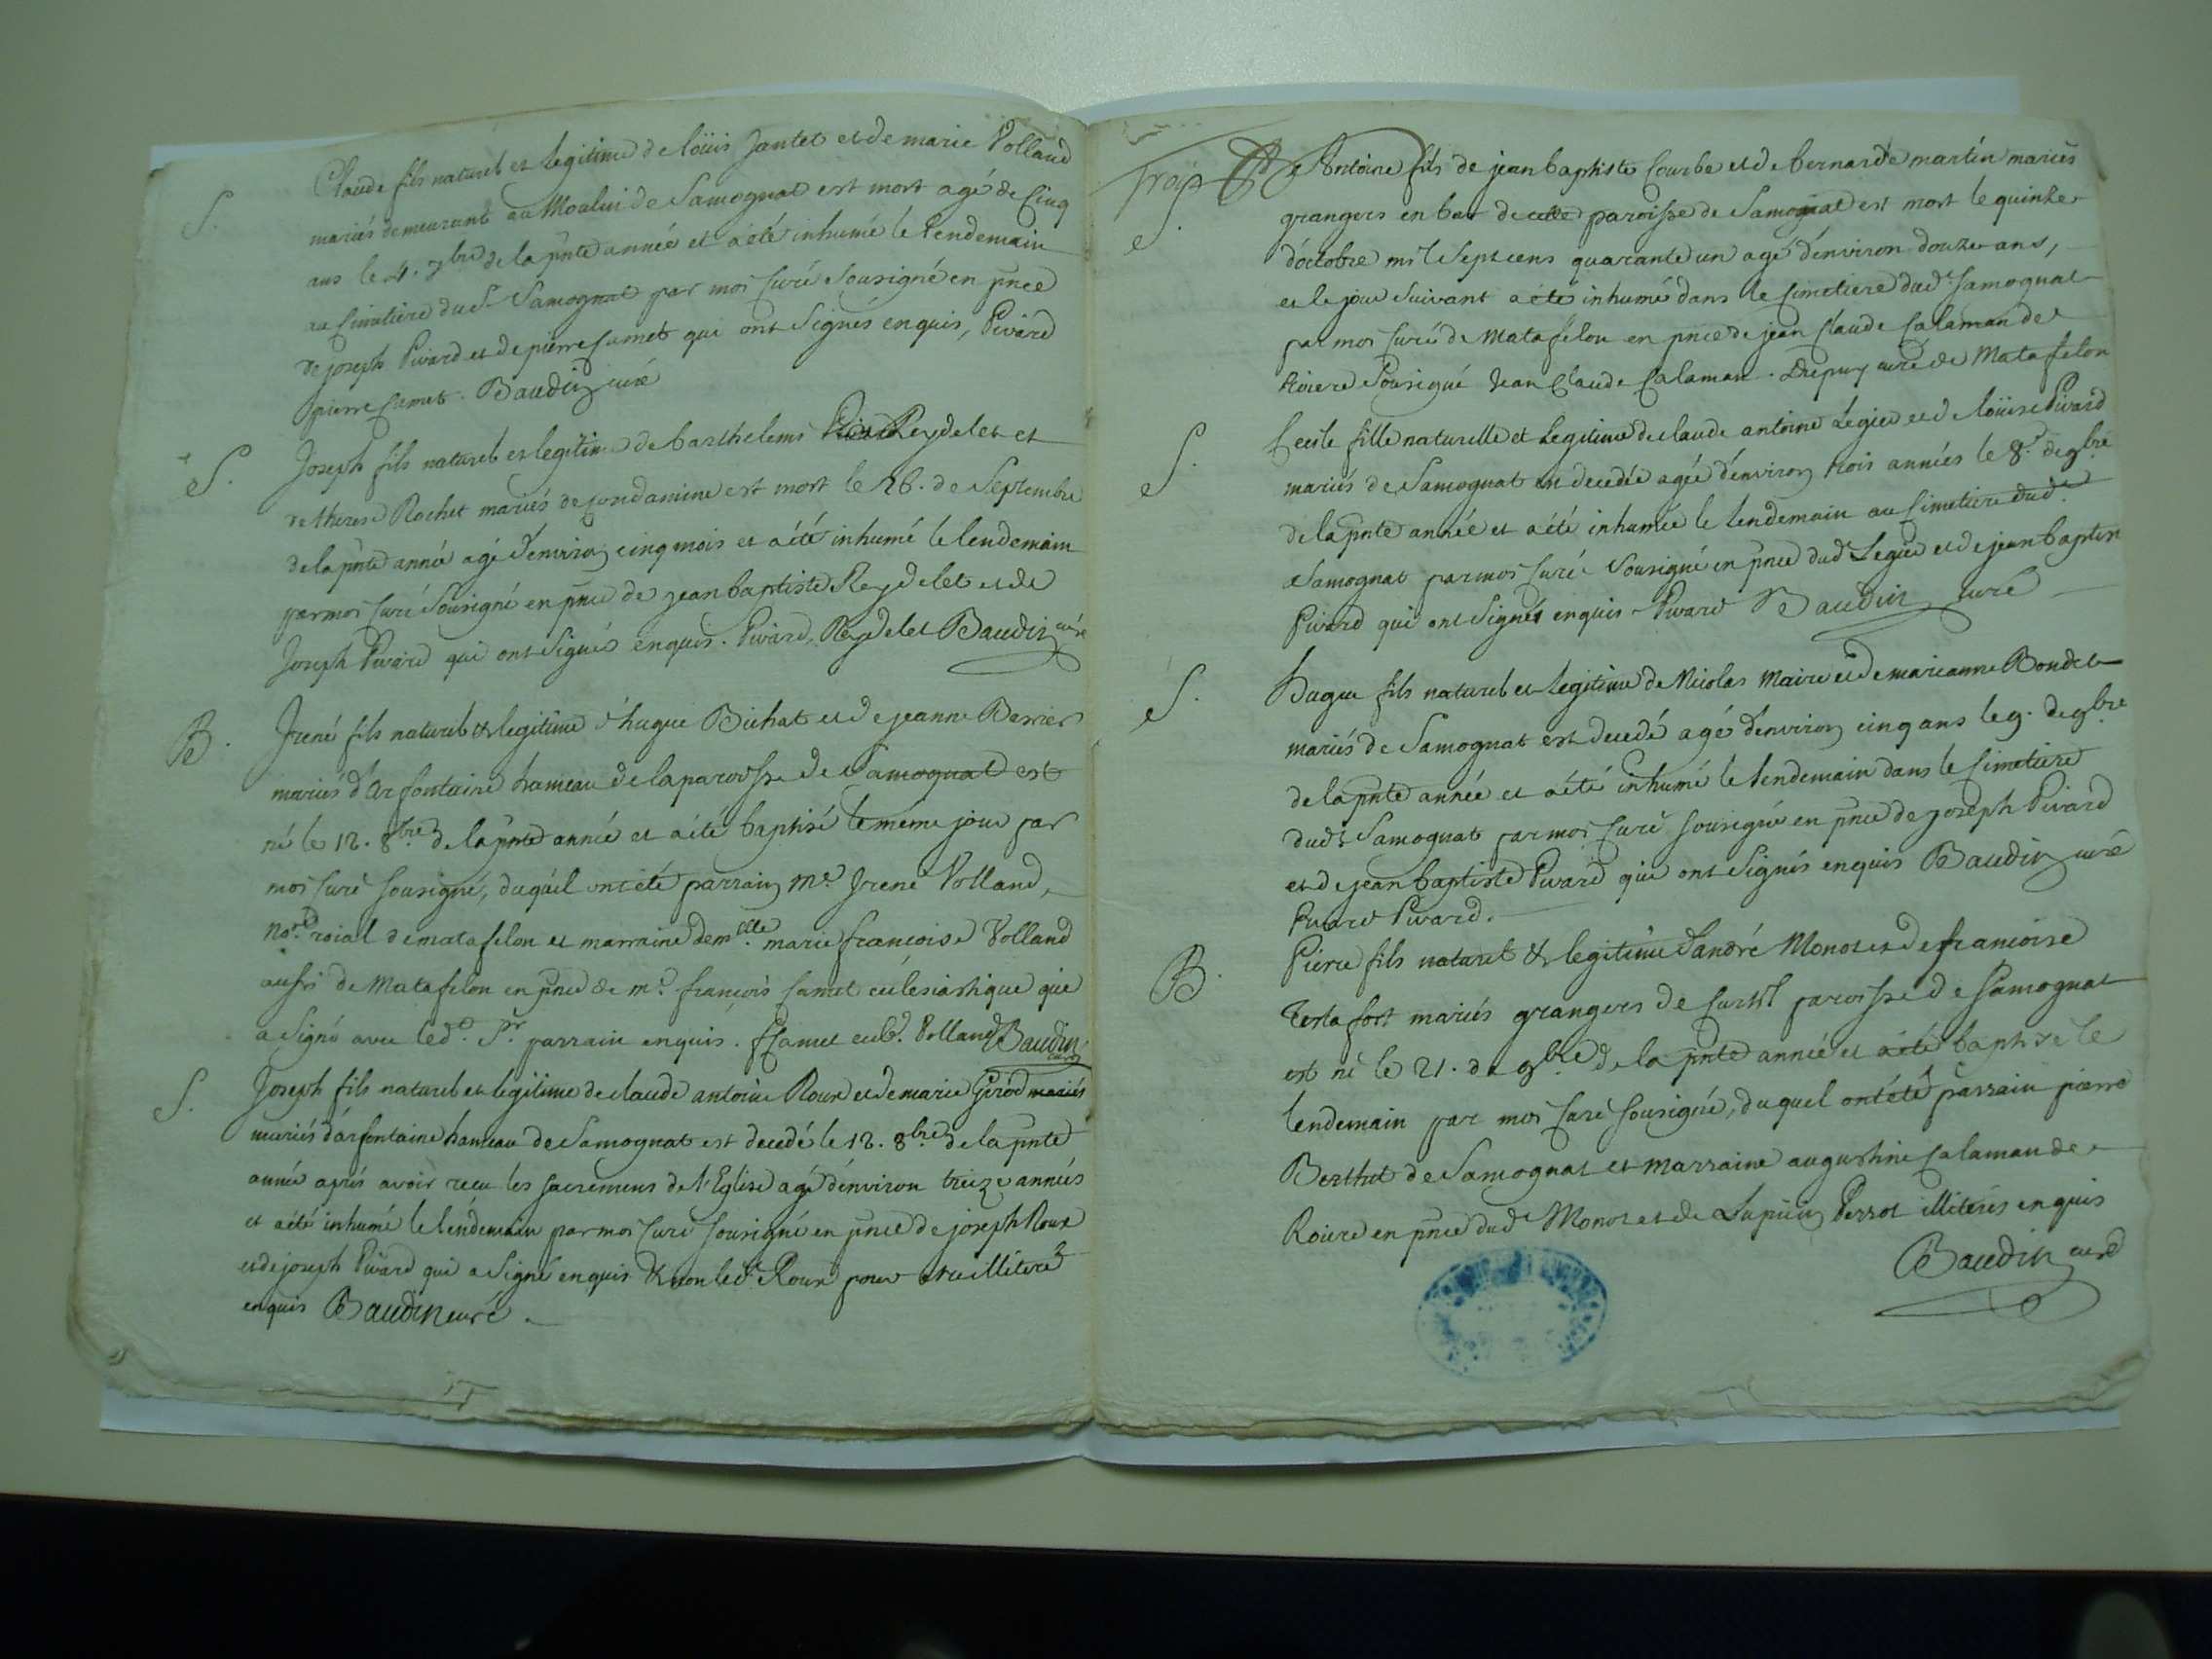 S. Claude fils naturel et legitime de loüis Jantet et de marie Volland
mariés demeurant au Moulin de Samognat est mort agé de Cinq
ans le 4. 7bre de la pnte année et a été inhumé le lendemain
au Cimitiere dud. Samognat par moi Curé Sousigné en pnce
de joseph Pivard et de pierre Camet qui ont Signés enquis, Pivard
pierre Camet. Baudin curé
S. Joseph fils naturel et legitime de barthelemi Reydelet et
de therese Rochet mariés de condamine est mort le 26. de Septembre
de la pnte année agé d'environ cinq mois et a été inhumé le lendemain
par moi Curé Sousigné en pnce de jean baptiste Reydelet et de
Joseph Pivard qui ont Signés enquis. Pivard, Reydelet Baudin curé
B. Irené fils naturel & legitime d'hugue Bichat et de jeanne Berrier
mariés d'arfontaine hameau de la paroisse de Samognat est
né le 12. 8bre de la pnte année et a été baptisé le même jour par
moi Curé Sousigné, duquel ont été parrain Me. Irené Volland,
Nore. roial de matafelon et marraine demlle. marie françoise Volland
aussi de Matafelon en pnce de mr. françois Camet eclésiastique qui
a Signé avec led. Sr. parrain enquis. f Camet eccl. Volland Baudin
curé
S. Joseph fils naturel et legitime de claude antoine Roux et de marie Girod mariés
mariés d'arfontaine hameau de Samognat est decedé le 12. 8bre de la pnte
année aprés avoir recu les sacremens de l'Eglise agé d'environ treize années
et a été inhumé le lendemain par moi Curé Sousigné en pnce de joseph Roux
et de joseph Pivard qui a Signé enquis & non led. Roux pour être illiteré
enquis Baudin curé.
S. Antoine fils de jean baptiste Courbe et de bernarde martin mariés
grangers en bat de cette paroisse de Samognat est mort le quinze
d'octobre mil Sept cens quarante un agé d'environ douze ans,
et le jour Suivant a été inhumé dans le Cimetiere dud. Samognat
par moi Curé de Matafelon en pnce de jean Claude Calaman de
Roiere Sousigné Jean Claude Calaman. Dupuy curé de Matafelon
S. Cecile fille naturelle et legitime de claude antoine Legier et de loüise Pivard
mariés de Samognat est decedée agée d'environ trois années le 8. de 9bre
de la pnte année et a été inhumée le lendemain au Cimetiere dud.
Samognat par moi Curé Sousigné en pnce dud. Legier et de jean baptiste
Pivard qui ont Signés enquis Pivard Baudin curé
S. Hugue fils naturel et legitime de Nicolas Maire et de marianne Bondet
mariés de Samognat est decedé agé d'environ cinq ans le 9. de 9bre
de la pnte année et a été inhumé le lendemain dans le Cimetiere
dud. Samognat par moi Curé Sousigné en pnce de joseph Pivard
et de jean baptiste Pivard qui ont Signés enquis Baudin curé
Pivard Pivard.
B. Pierre fils naturel & legitime d'andré Monot et de francoise
Testafort mariés grangers de Curtil paroisse de Samognat
est né le 21. de 9bre de la pnte année et a été baptisé le
lendemain par moi Curé Sousigné, duquel ont été parrain pierre
Berthet de Samognat et marraine augustine Calaman de
Roiere en pnce dud. Monot et de Lupicin Perrot illiterés enquis
Baudin curé